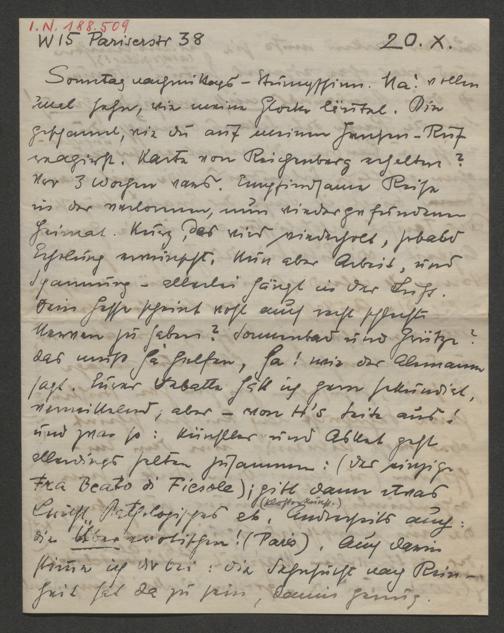 I.N. 188.509
W15 Pariserstr 38 20. X.
Sonntag nachmittags - Stumpfsinn. Na! wollen
mal sehn, wie meine Glocke läutet. Bin
gespannt, wie du auf meinen Ruf
reagierst. Karte von Reichenberg erhalten?
Vor 3 Wochen war's. Empfindsame Reise
in der verlornen, nun wiedergefundenen
Heimat. Kurz, das wird wiederholt, sobald
Erholung erwünscht. Nun aber Arbeit, und
Spannung - allerlei hängt in der Luft.
Dein scheint wohl auch recht schlechte
Nerven zu haben? Sonnenbad und Grütze?
das muß ja helfen, ja! wie der Alemanne
sagt. Eurer Debatte hätt ich gern sekundiert,
vermittelnd, aber - von H's Seite aus!
und zwar so: Künstler und Asket geht
allerdings selten zusammen: (der einzige
Fra Beato di Fiesole); gibt dann etwas
(Klosterkunst.)
leicht Pathologisches ab. Anderseits auch:
die Übererotischen! (Paris). Auch darin
stimm ich dir bei: die Sehnsucht nach Rein-
heit hat da zu sein, damit genug.